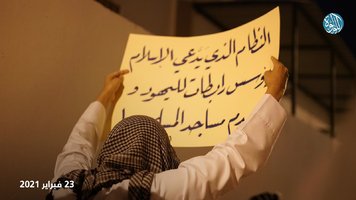 النظام الذي يدعي الإسلام
يؤسس رابطات لليهود و
يهدم مساجد المسلمين
23 فبراير 2021